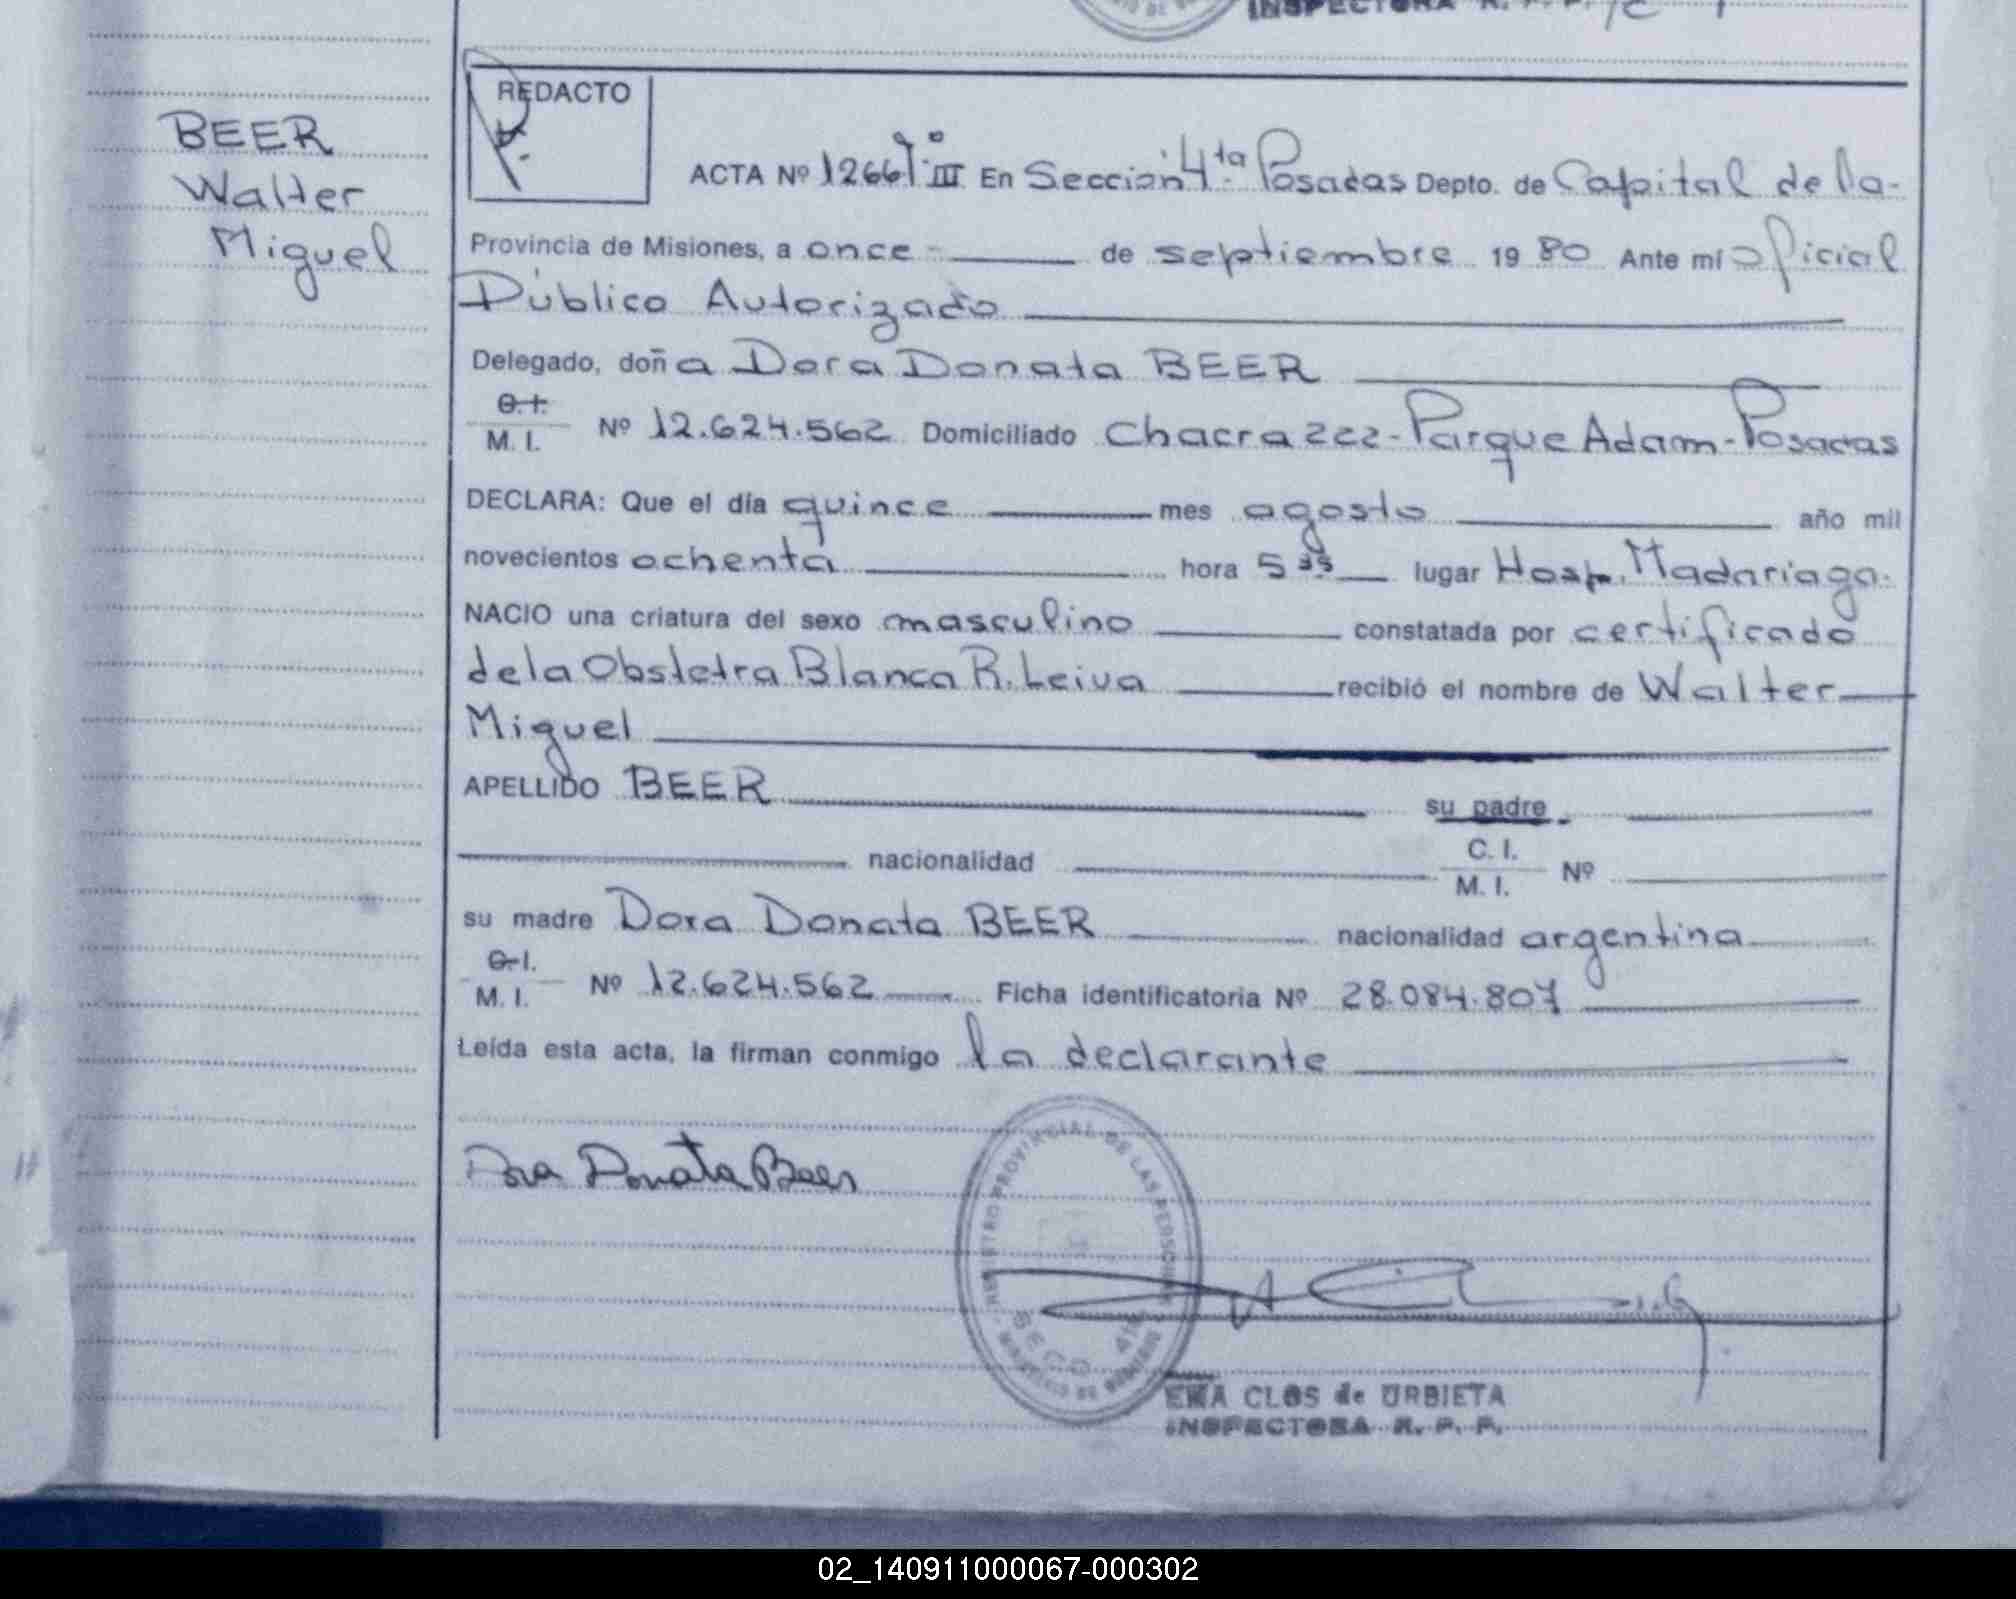 INSPECTORA R. P. P.
BEER
Walter
Miguel
REDACTO
ACTA Nº 1266 Tº III En Sección 4ta Posadas Depto. de Capital de la
Provincia de Misiones, a once de septiembre 1980 Ante mí Oficial
Público Autorizado
Delegado, doña Dora Donata BEER
C. I.
M. I. Nº 12.624.562 Domiciliado Chacra 222-Parque Adam-Posadas
DECLARA: Que el día quince mes agosto año mil
novecientos ochenta hora 5 35 lugar Hosp. Madariaga.
NACIO una criatura del sexo masculino constatada por certificado
de la Obstetra Blanca R. Leiva recibió el nombre de Walter
Miguel
APELLIDO BEER su padre
nacionalidad C. I. M. I. Nº
su madre Dora Donata BEER nacionalidad argentina
C. I.
M. I. Nº 12.624.562 Ficha identificatoria Nº 28.084.807
Leída esta acta, la firman conmigo la declarante
Dora Donata Beer
REGISTRO PROVINCIAL DE LAS PERSONAS
SECC. 4ta
MINISTERIO DE GOBIERNO
EMA CLOS de URBIETA
INSPECTORA R. P. P.
02_140911000067-000302